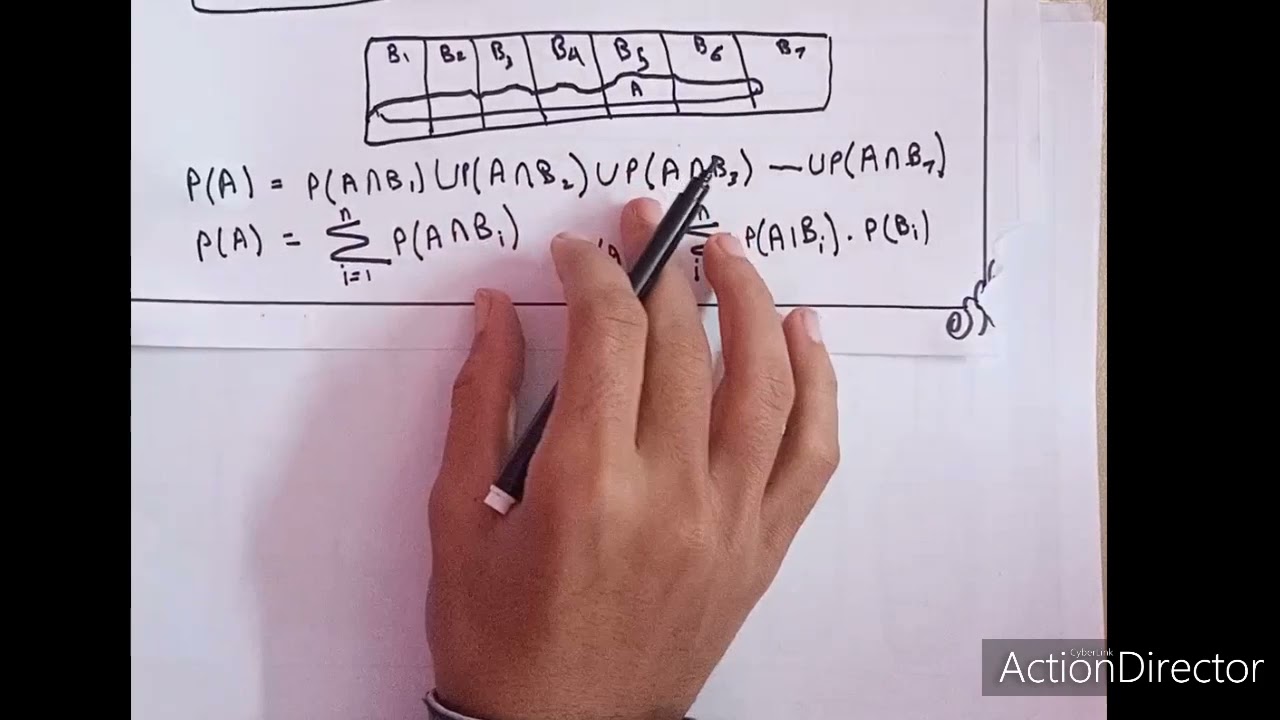 B₁ B₂ B₃ B₄ B₅ B₆ B₇
A
P(A) = P(A∩B₁) ∪ P(A∩B₂) ∪ P(A∩B₃) — ∪ P(A∩B₇)
P(A) = ∑ᵢ₌₁ⁿ P(A∩Bᵢ) ∑ᵢⁿ P(A|Bᵢ) . P(Bᵢ)
CyberLink
ActionDirector